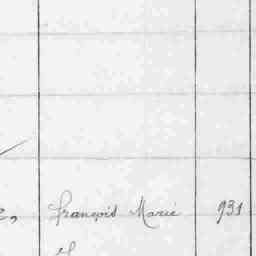 François Marie 931